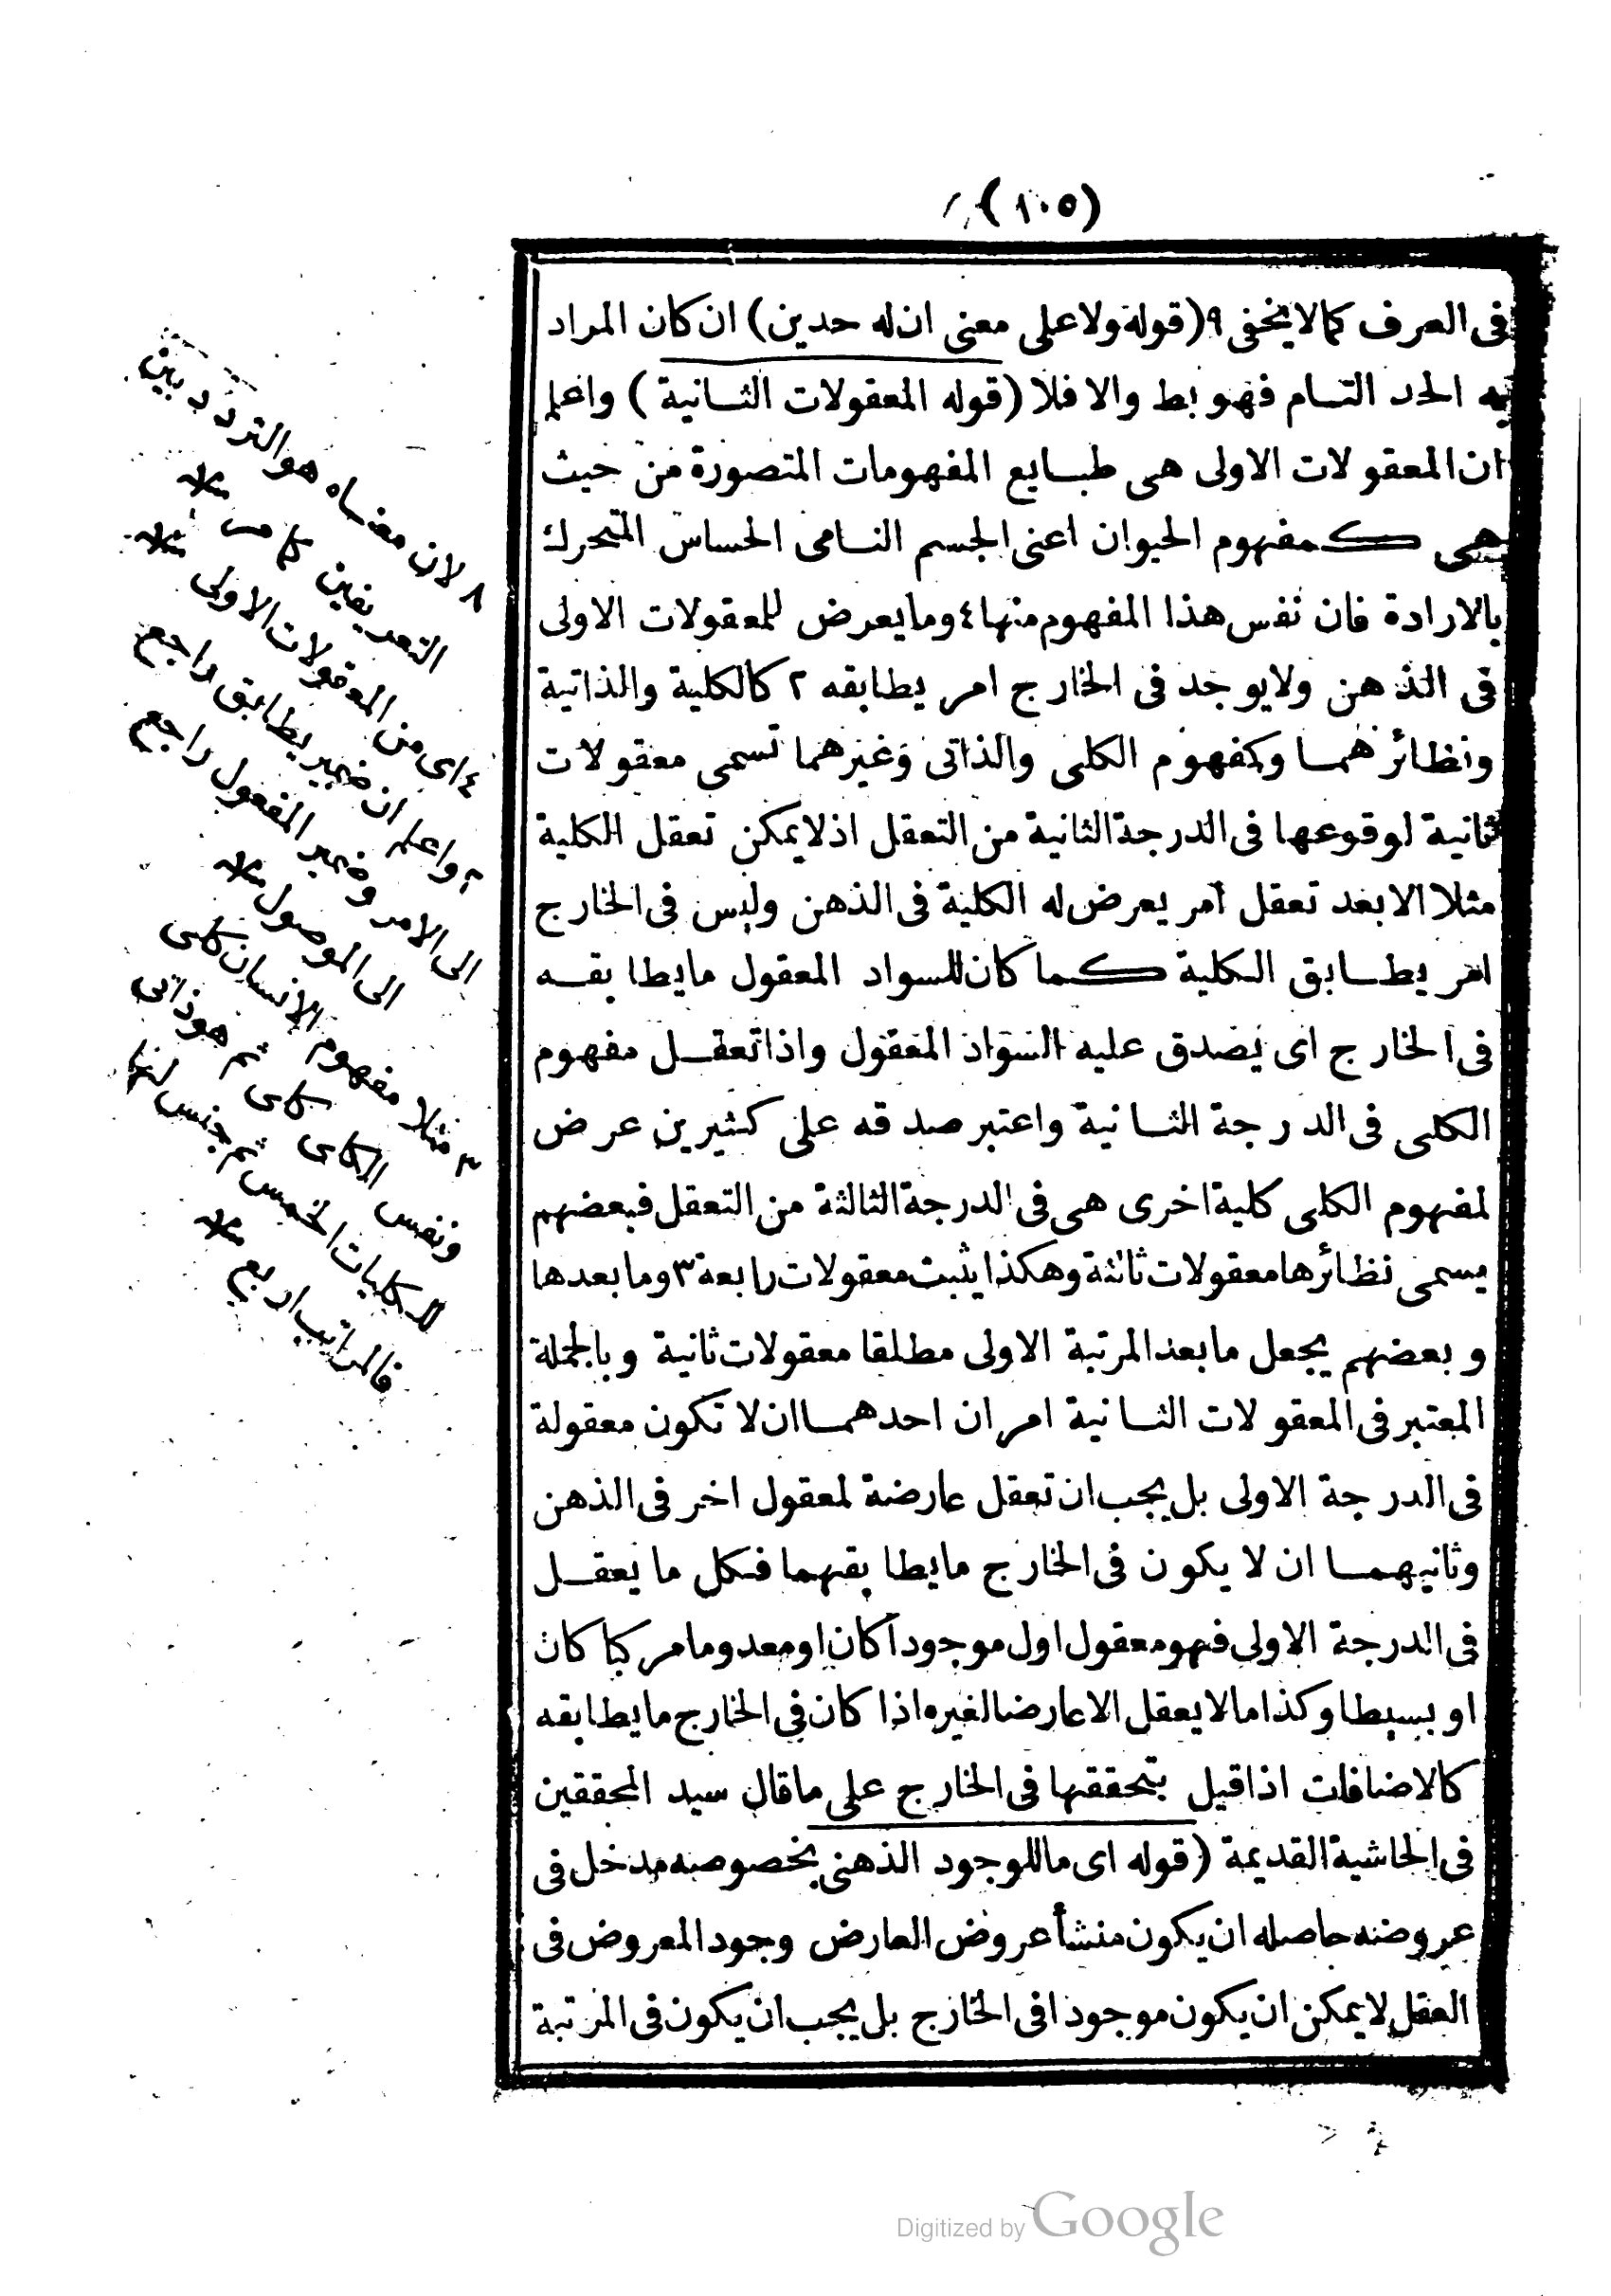 (١٠٥)
فى العرف كمالايخفى ٩ (قوله ولا على معنى ان له حدين) ان كان المراد
به الحد التـام فهو بط والا فلا (قوله المعقولات الثـانية) واعلم
ان المعقولات الاولى هى طبـايع المفهومات المتصورة من حيث
هى كمفهوم الحيوان اعنى الجسم النـامى الحساس المتحرك
بالارادة فان نفس هذا المفهوم منها ٤ وما يعرض للمعقولات الاولى
فى الذهن ولا يوجد فى الخارج امر يطابقه ٢ كالكلية والذاتية
ونظائرهمـا وكمفهوم الكلى والذاتى وغيرهما تسمى معقولات
ثانية لوقوعها فى الدرجة الثانية من التعقل اذ لا يمكن تعقل الكلية
مثلا الا بعد تعقل امر يعرض له الكلية فى الذهن وليس فى الخارج
امر يطـابق الكلية كما كان للسواد المعقول مايطابقـه
فى الخارج اى يصدق عليه السواد المعقول واذا تعقـل مفهوم
الكلى فى الدرجة الثـانية واعتبر صدقه على كثيرين عرض
لمفهوم الكلى كلية اخرى هى فى الدرجة الثالثة من التعقل فبعضهم
يسمى نظائرها معقولات ثالثة وهكذا يثبت معقولات رابعة ٣ وما بعدها
وبعضهم يجعل ما بعد المرتبة الاولى مطلقا معقولات ثانية وبالجملة
المعتبر فى المعقولات الثـانية امران احدهمـا ان لا تكون معقولة
فى الدرجة الاولى بل يجب ان تعقل عارضة لمعقول اخر فى الذهن
وثانيهمـا ان لا يكون فى الخارج مايطابقهما فكل ما يعقـل
فى الدرجة الاولى فهو معقول اول موجودا كان او معدوما مركبا كان
او بسيطا وكذا ما لا يعقل الا عارضا لغيره اذا كان فى الخارج مايطابقه
كالاضافات اذا قيل بتحققها فى الخارج على ماقال سيد المحققين
فى الحاشية القديمة (قوله اى ما للوجود الذهنى بخصوصه مدخل فى
عروضه حاصله ان يكون منشأ عروض العارض وجود المعروض فى
العقل لا يمكن ان يكون موجودا فى الخارج بل يجب ان يكون فى المرتبة
٨ لان معنـاه هو التردد بين
التعريفين كامـ ٢ منلا
٤ اى من المعقولات الاولى منلا
٢ واعلم ان ضمير يطابق راجع
الى الامر وضمير المفعول راجع
الى الموصول منلا
٣ مثلا مفهوم الانسان كلى
ونفس الكلى كلى ثم هو ذاتى
للكليات الخمس ثم جنس لها
فالمراتب اربع منلا
Digitized by Google